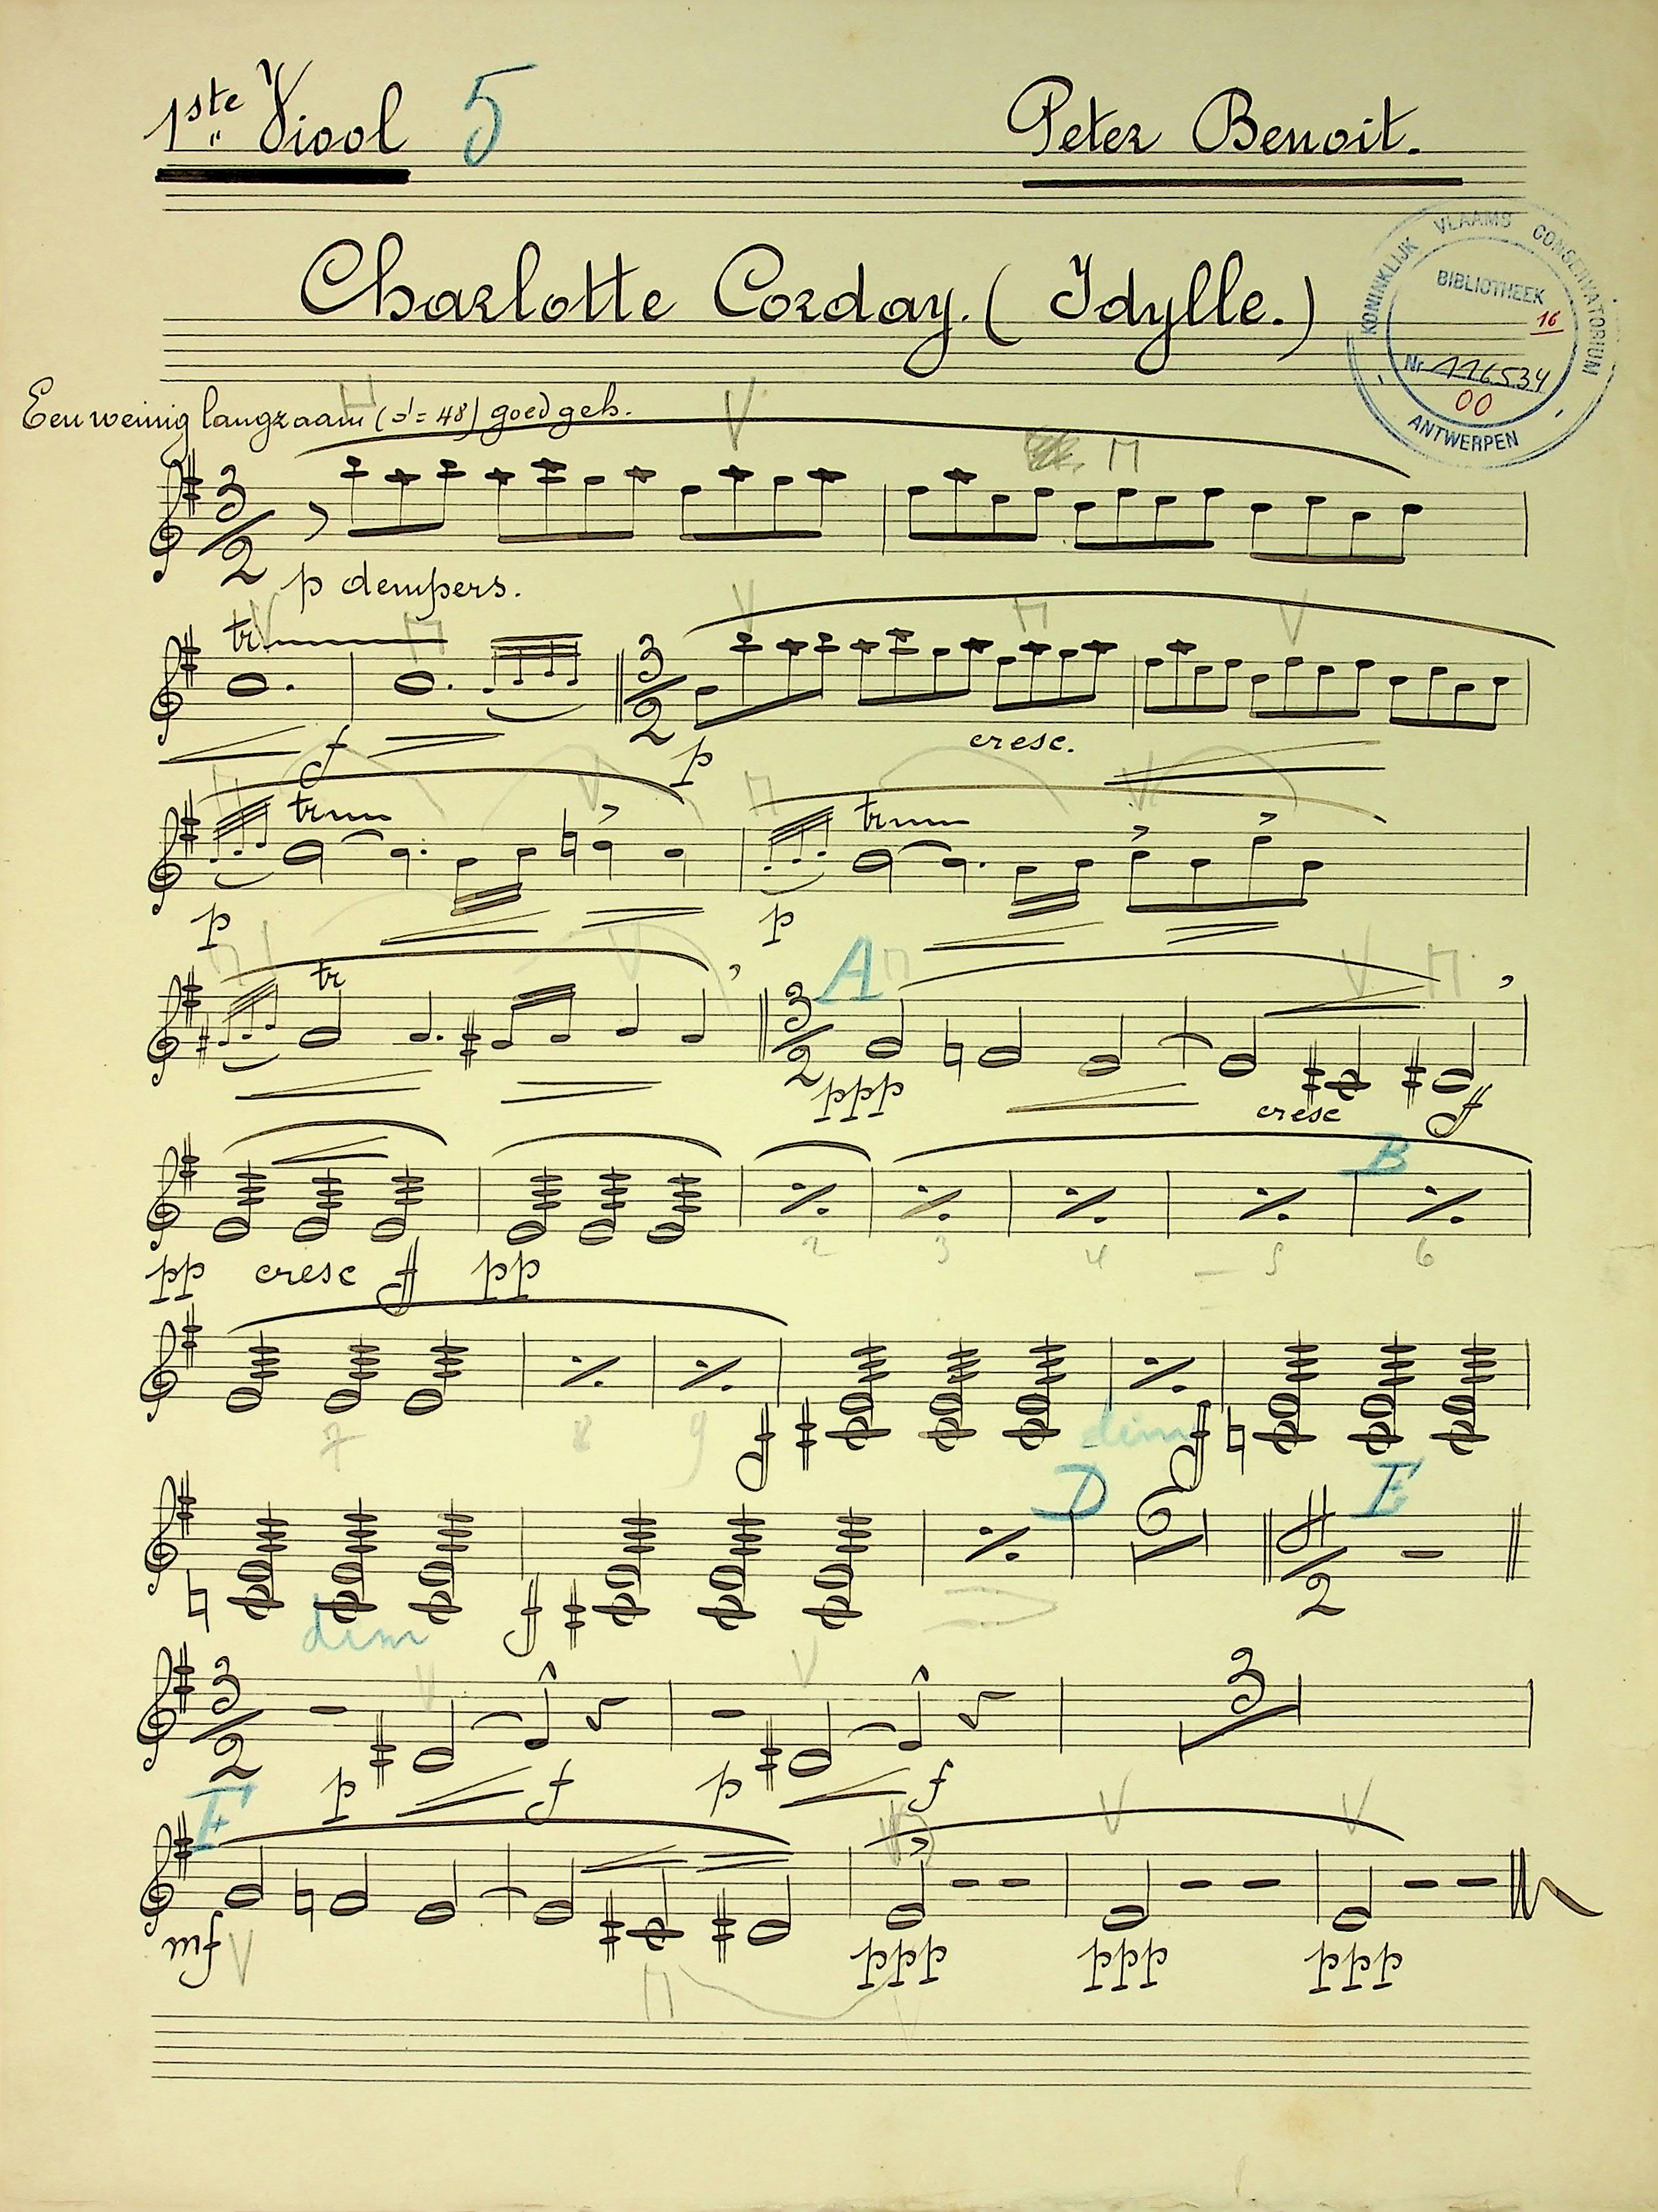 1ste Viool 5 Peter Benoit.
Charlotte Corday. ( Idylle.)
KONINKLIJK VLAAMS CONSERVATORIUM
BIBLIOTHEEK
16
Nr 116534
00
ANTWERPEN
Een weinig langzaam ( = 48) goed geb.
3/2
p dempers.
tr 3/2
f p cresc.
tr tr
p p
tr A 3/2
ppp cresc f
B
2 3 4 5 6
pp cresc f pp
7 8 9 f dim f
D 6 E 4/2
dim f
3/2 3
p f p f
F
mf ppp ppp ppp